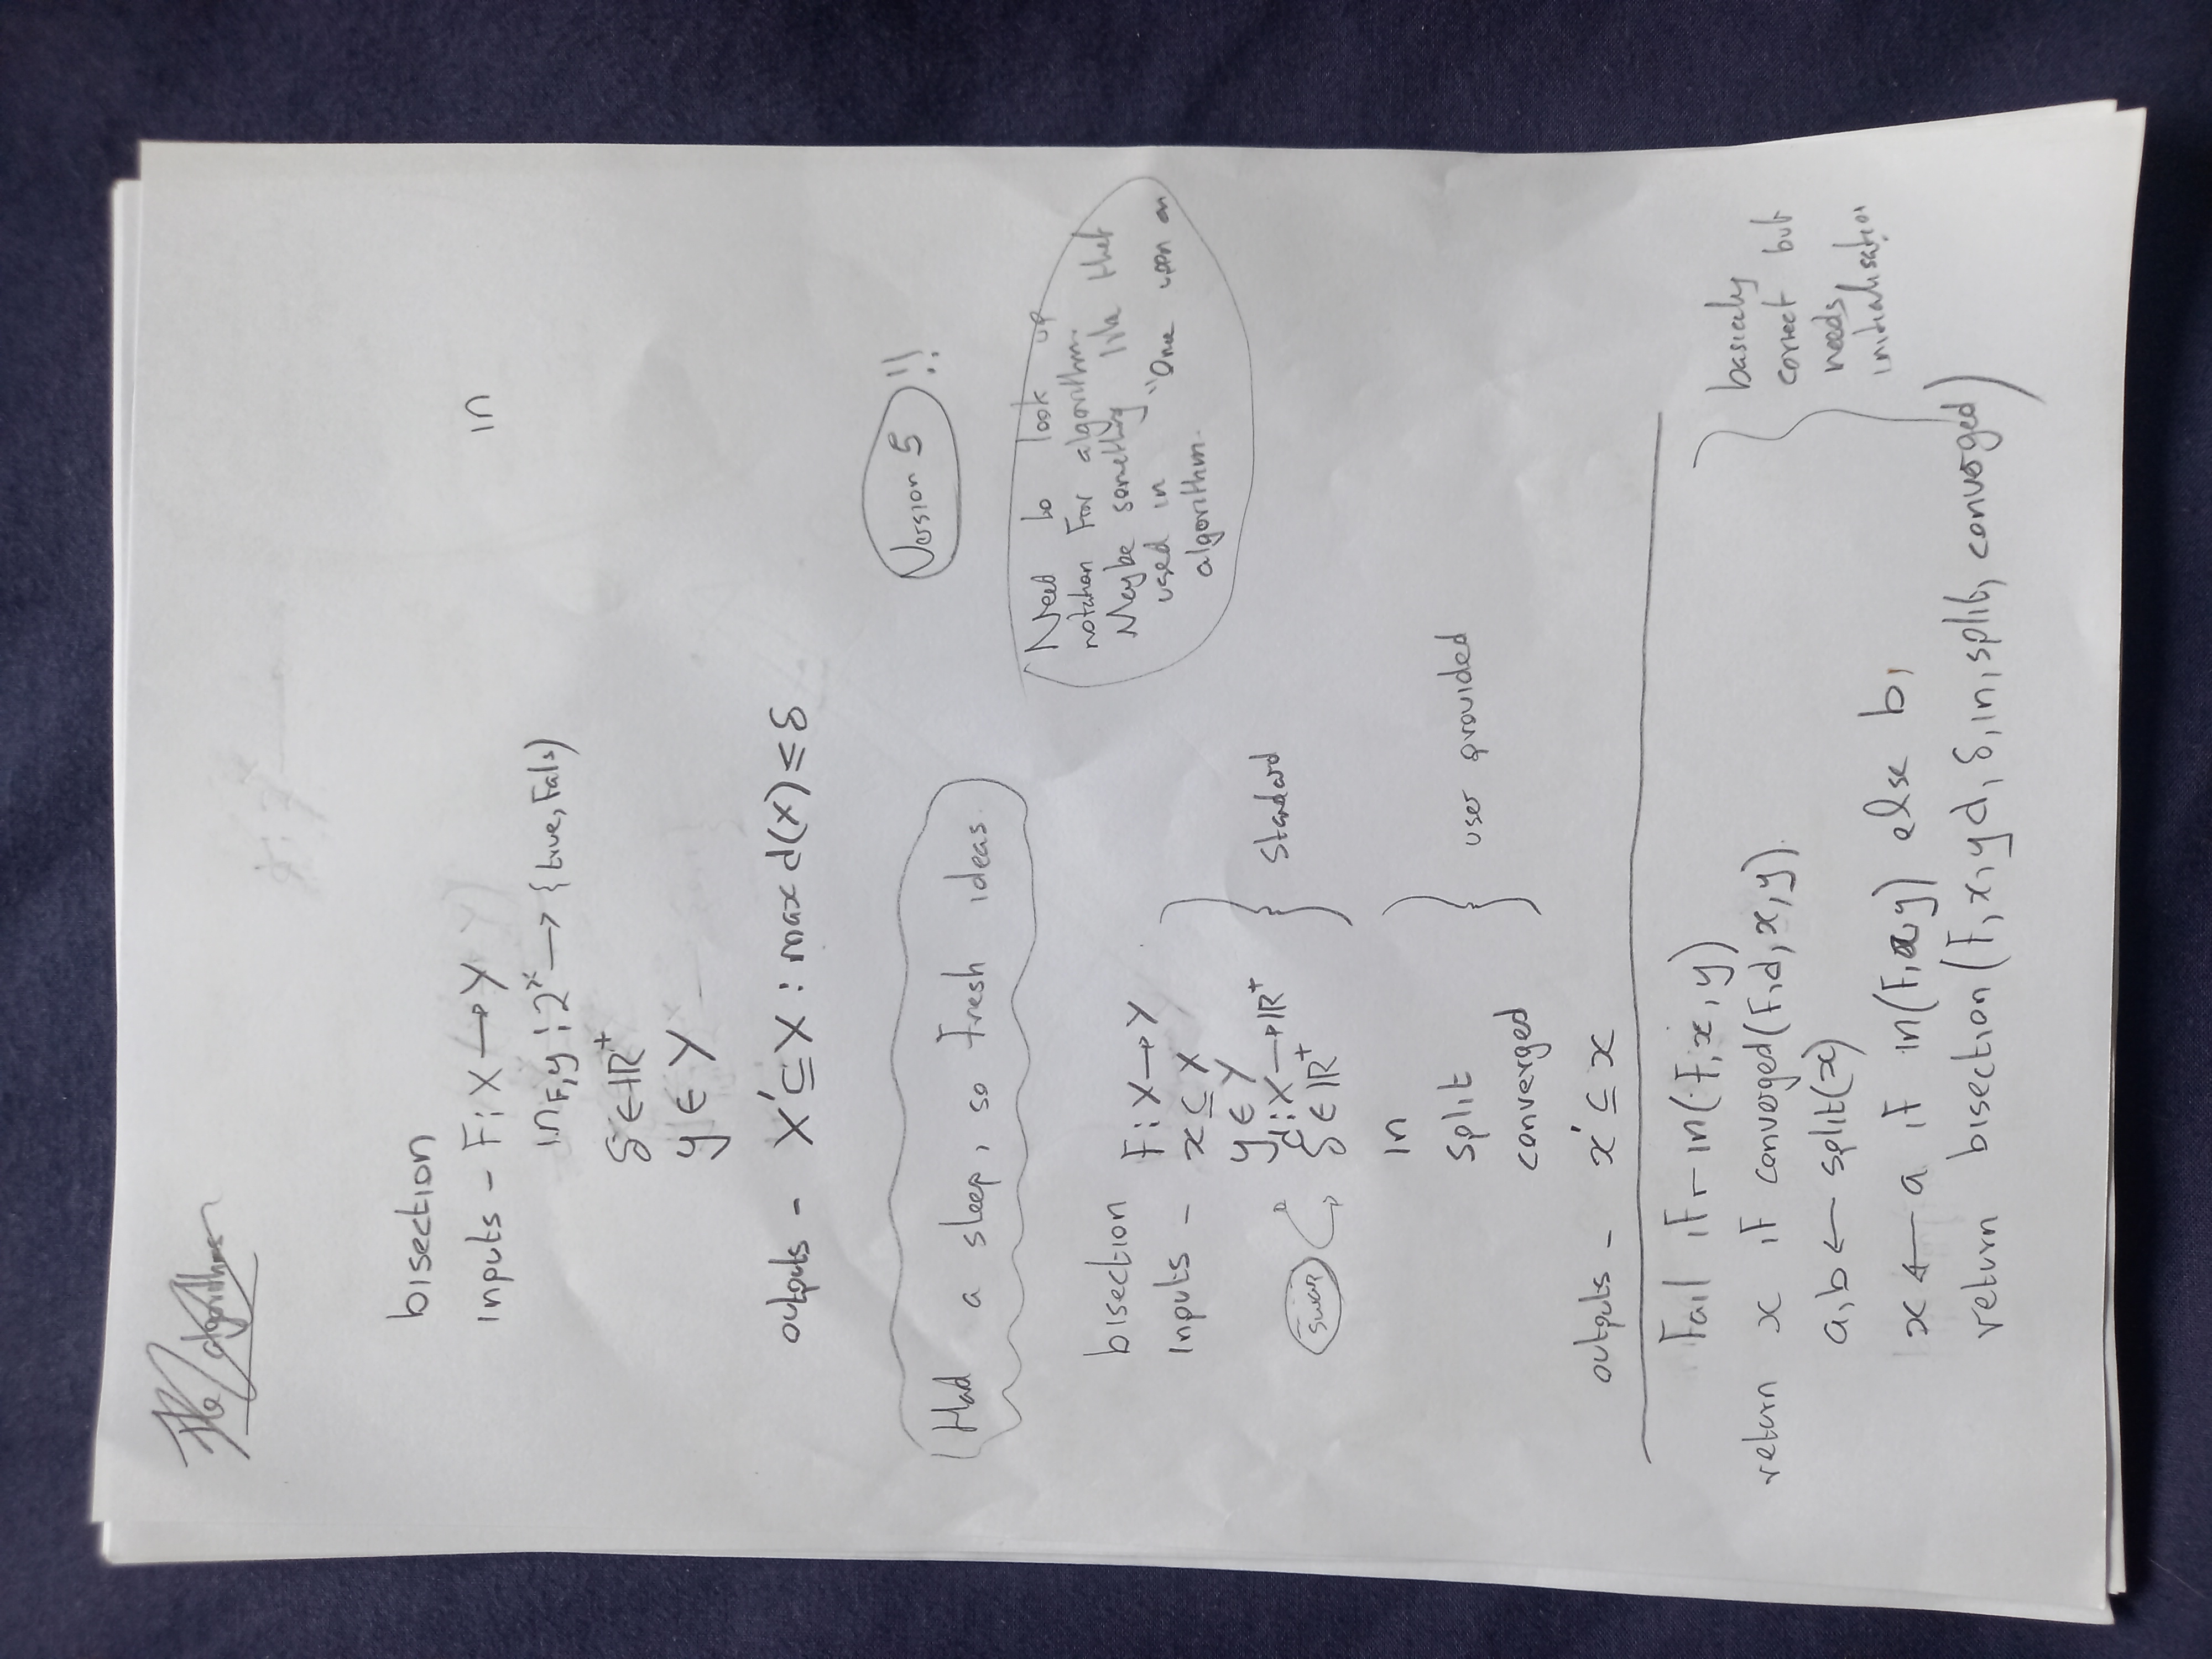 The algorithms
bisection
inputs - F: X → Y
in
in_F,y : 2^x → {true, Fals)
δ ∈ ℝ⁺
y ∈ Y
outputs - X' ⊆ X : max d(x) ≤ δ
Version 5 !!
Had a sleep, so Fresh ideas.
Need to look up
notation For algorithm.
Maybe something like that
used in "Once upon an
algorithm.
bisection
F: X → Y
inputs - x ⊆ X
y ∈ Y
d: X → ℝ⁺
swap
δ ∈ ℝ⁺
standard
in
split
converged
user provided
outputs - x' ⊆ x
Fail iF ¬ in(F, x, y)
return x iF converged(F, d, x, y).
a, b ← split(x)
x ← a iF in(F, a, y) else b,
return bisection(F, x, y d, δ, in, split, converged)
basically
correct but
needs
initialisation